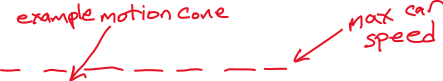 example motion cone
max car
speed